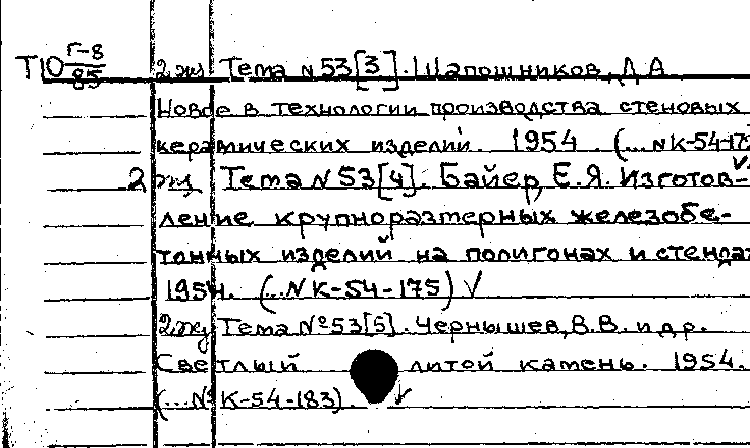 Т10 Г-8/85 2 эж Тема N 53[3]. Шапошников, Д.А.
Новое в технологии производства стеновых
керамических изделий. 1954 (...NК-54-173
2 эж Тема N 53[4]. Байер, Е.Я. Изготов-
ление крупноразмерных железобе-
тонных изделий на полигонах и стендах
1954. (...N К-54-175) √
2 эж Тема №53[5]. Чернышев, В.В. и др.
Светлый литой камень. 1954.
(...№ К-54-183). √